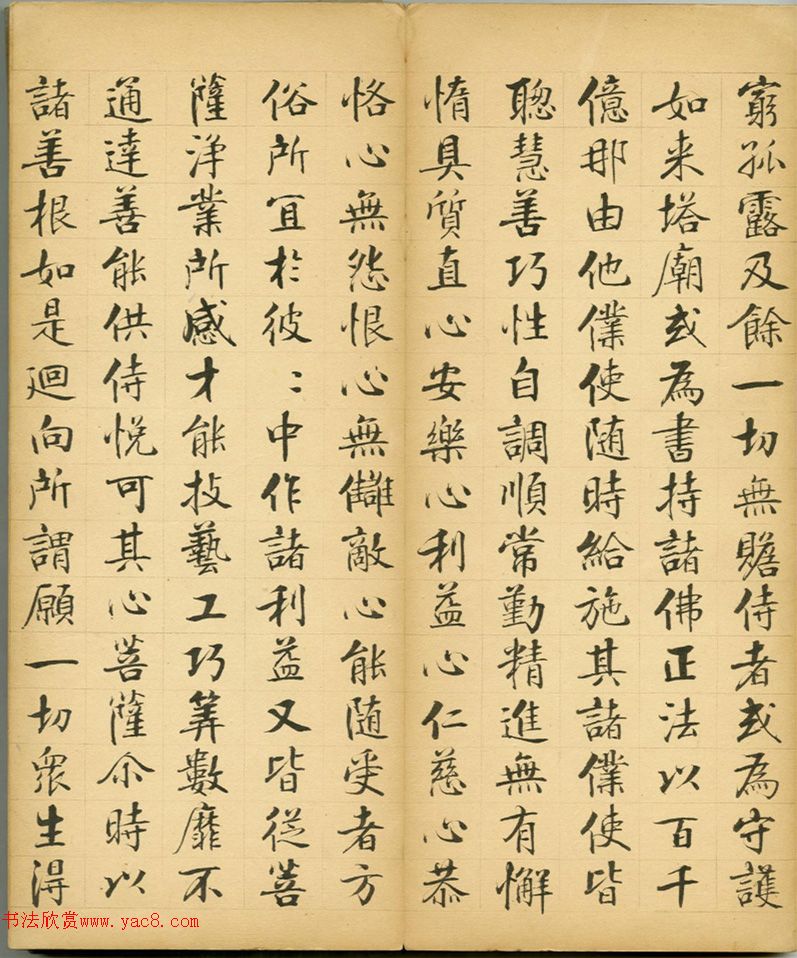 窮孤露及餘一切無贍侍者或為守護
如来塔廟或為書持諸佛正法以百千
億那由他僕使随時給施其諸僕使皆
聦慧善巧性自調順常勤精進無有懈
惰具質直心安樂心利益心仁慈心恭
恪心無怨恨心無讎敵心能随受者方
俗所冝於彼〻中作諸利益又皆從菩
薩浄業所感才能技藝工巧筭數靡不
通達善能供侍悅可其心菩薩尒時以
諸善根如是廻向所謂願一切衆生淂
书法欣赏www.yac8.com